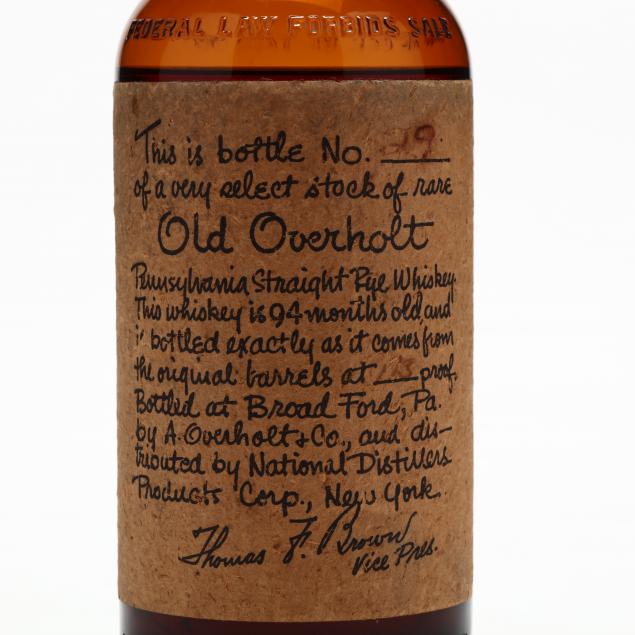 FEDERAL LAW FORBIDS SALE
This is bottle No. 29
of a very select stock of rare
Old Overholt
Pennsylvania Straight Rye Whiskey.
This whiskey is 94 months old, and
is bottled exactly as it comes from
the original barrels at 113 proof.
Bottled at Broad Ford, Pa.
by A. Overholt & Co., and dis-
tributed by National Distillers
Products Corp., New York.
Thomas F. Brown
Vice Pres.